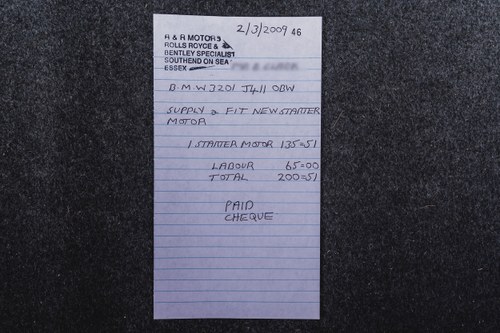 2/3/2009 46
A & R MOTORS
ROLLS ROYCE &
BENTLEY SPECIALIST
SOUTHEND ON SEA
ESSEX
B.M.W 320I J411 OBW
SUPPLY & FIT NEW STARTER
MOTOR
1 STARTER MOTOR 135=51
LABOUR 65=00
TOTAL 200=51
PAID
CHEQUE